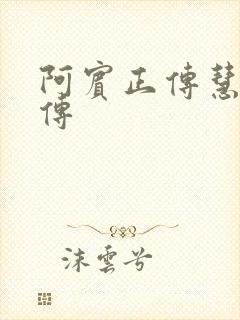 阿賓正傳慧
傳
沫雲兮